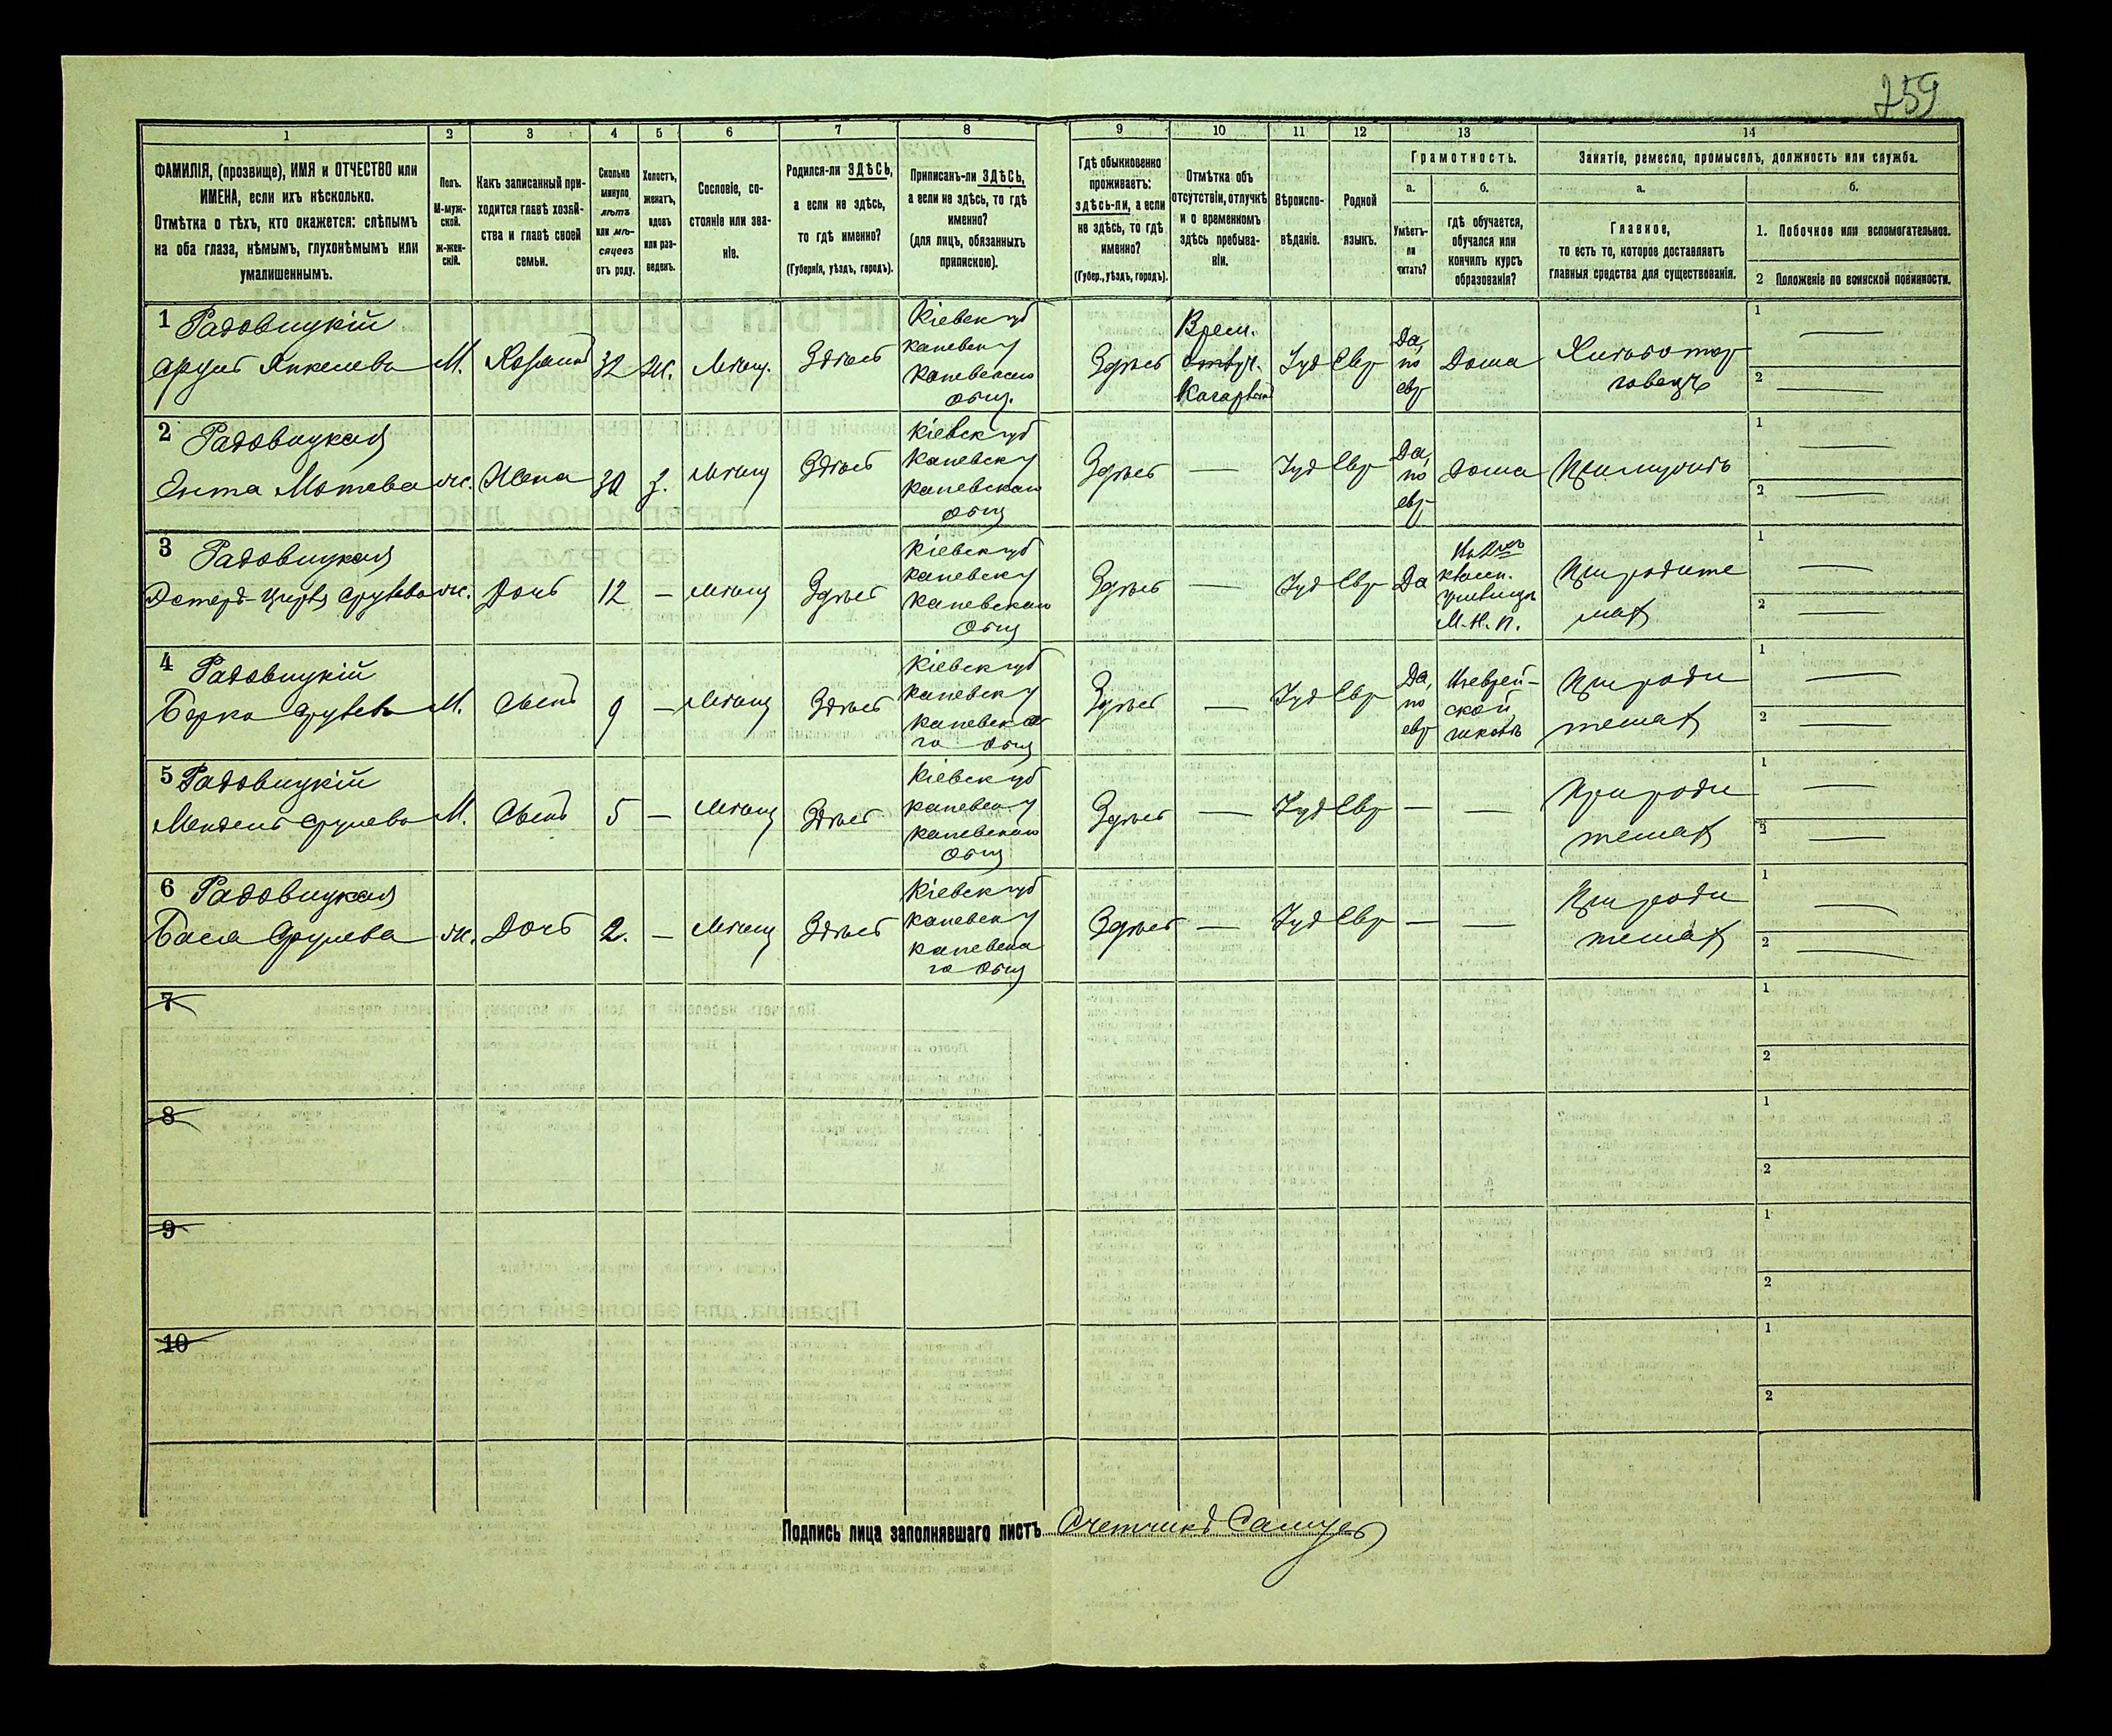 259
1 2 3 4 5 6 7 8 9 10 11 12 13 14
ФАМИЛІЯ, (прозвище), ИМЯ и ОТЧЕСТВО или
ИМЕНА, если ихъ нѣсколько.
Отмѣтка о тѣхъ, кто окажется: слѣпымъ
на оба глаза, нѣмымъ, глухонѣмымъ или
умалишеннымъ.
Полъ.
М-муж-
ской.
ж-жен-
скій.
Какъ записанный при-
ходится главѣ хозяй-
ства и главѣ своей
семьи.
Сколько
минуло
лѣтъ
или мѣ-
сяцевъ
отъ роду.
Холостъ,
женатъ,
вдовъ
или раз-
веденъ.
Сословіе, со-
стояніе или зва-
ніе.
Родился-ли ЗДѢСЬ,
а если не здѣсь,
то гдѣ именно?
(Губернія, уѣздъ, городъ).
Приписанъ-ли ЗДѢСЬ,
а если не здѣсь, то гдѣ
именно?
(для лицъ, обязанныхъ
припискою).
Гдѣ обыкновенно
проживаетъ:
здѣсь-ли, а если
не здѣсь, то гдѣ
именно?
(Губер., уѣздъ, городъ).
Отмѣтка объ
отсутствіи, отлучкѣ
и о временномъ
здѣсь пребыва-
ніи.
Вѣроиспо-
вѣданіе.
Родной
языкъ.
Грамотность.
а.
Умѣетъ-
ли
читать?
б.
гдѣ обучается,
обучался или
кончилъ курсъ
образованія?
Занятіе, ремесло, промыселъ, должность или служба.
а.
Главное,
то есть то, которое доставляетъ
главныя средства для существованія.
б.
1. Побочное или вспомогательное.
2 Положеніе по воинской повинности.
1 Радовицкій
Срулъ Янкелевъ М. Хозяинъ 32 Ж. Мѣщ. Здѣсь
Кіевск губ
Каневск у
Каневскаго
общ.
Здѣсь
Врем.
Отлуч.
Іуд Евр
Да,
по
евр
Дома
Хлѣботор
говецъ
1
2
2 Радовицкая
Ента Мотева ж. Жена 30 З. Мѣщ Здѣсь
Кіевск губ
Каневск у
Каневскаго
общ
Здѣсь — Іуд Евр
Да,
по
евр
Дома При мужѣ
1
2
3 Радовицкая
Эстеръ-Цирля Срулева ж. Дочь 12 — Мѣщ Здѣсь
Кіевск губ
Каневск у
Каневскаго
общ
Здѣсь — Іуд Евр Да
классн.
училищѣ
М. Н. П.
При родите
ляхъ
1
2
4 Радовицкій
Берко Срулевъ М. Сынъ 9 — Мѣщ Здѣсь
Кіевск губ
Каневск у
Каневска
го общ
Здѣсь — Іуд Евр
Да,
по
евр
Въ еврей-
ской
школѣ
При роди
теляхъ
1
2
5 Радовицкій
Мендель Срулевъ М. Сынъ 5 — Мѣщ Здѣсь
Кіевск губ
Каневск у
Каневскаго
общ
Здѣсь — Іуд Евр — —
При роди
теляхъ
1
2
6 Радовицкая
Бася Срулева ж. Дочь 2. — Мѣщ Здѣсь
Кіевск губ
Каневск у
Каневска
го общ
Здѣсь — Іуд Евр — —
При роди
теляхъ
1
2
7
1
2
8
1
2
9
1
2
10
1
2
Подпись лица заполнявшаго листъ Счетчикъ